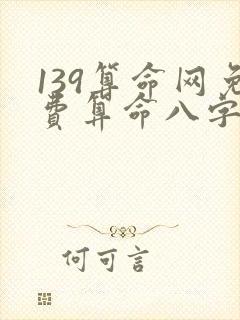 139算命网免
费算命八字
何可言